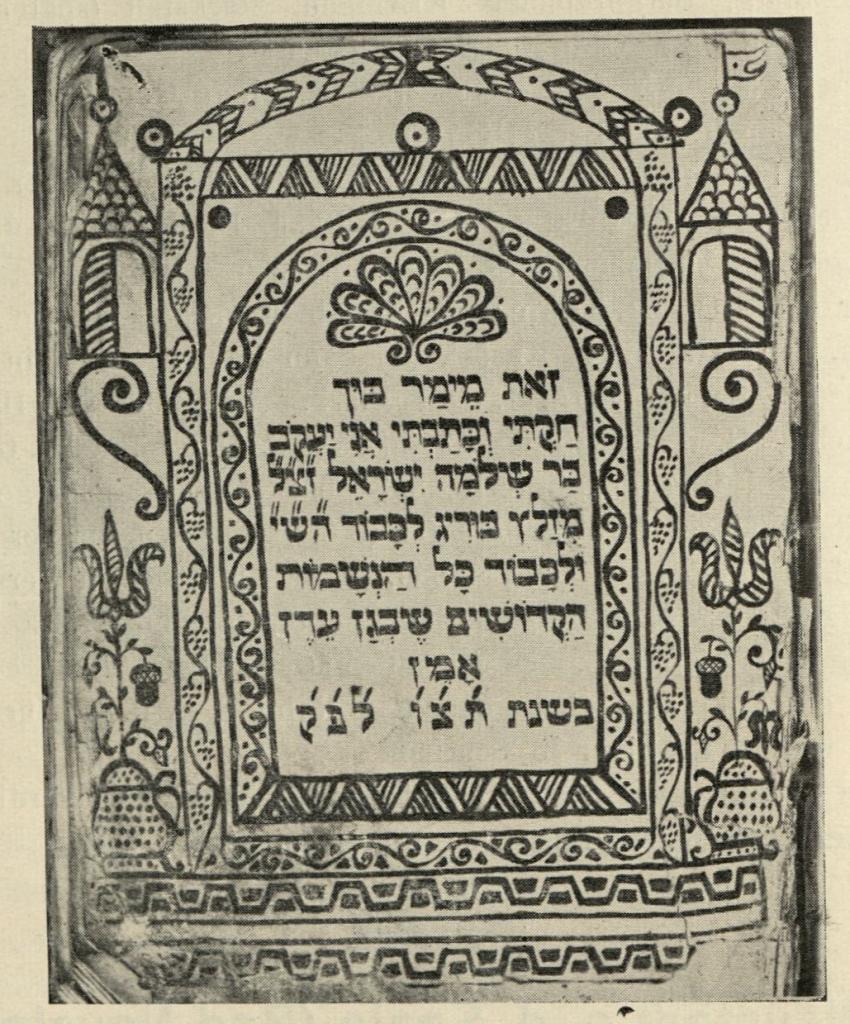 זֹאת מֵימַר בּוּךְ
חַקְתִּי וְכָתַבְתִּי אֲנִי יַעֲקֹב
בַּר שְׁלֹמֹה יִשְׂרָאֵל זצ״ל
מִזַלְץ בּוּרִיג לִכְבוֹד הש״י
וְלִכְבוֹד כָּל הַנְשָׁמוֹת
הַקְדוֹשִׁים שֶׁבְּגַן עֵדֶן
אָמֵן
בשנת ת׳צ׳ו׳ לפ״ק